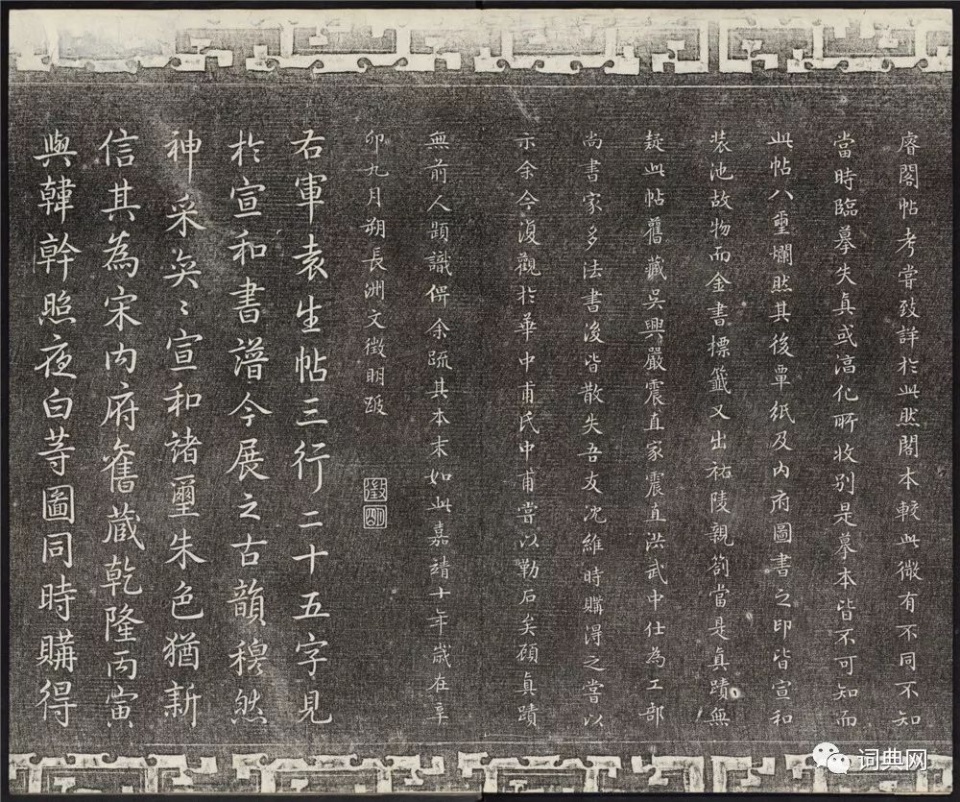 睿閣帖考嘗致詳於此然閣本較此微有不同不知
當時臨摹失真或淳化所收別是摹本皆不可知而
此帖八璽爛然其後覃紙及內府圖書之印皆宣和
裝池故物而金書標籤又出祐陵親劄當是真蹟無
疑此帖舊藏吳興嚴震直家震直洪武中仕為工部
尚書家多法書後皆散失吾友沈維時購得之嘗以
示余今復觀於華中甫氏中甫嘗以勒石矣顧真蹟
無前人題識俾余疏其本末如此嘉靖十年歲在辛
卯九月朔長洲文徵明跋
徵明
右軍袁生帖三行二十五字見
於宣和書譜今展之古韻穆然
神采奕〻宣和諸璽朱色猶新
信其為宋內府舊藏乾隆丙寅
與韓幹照夜白等圖同時購得
词典网